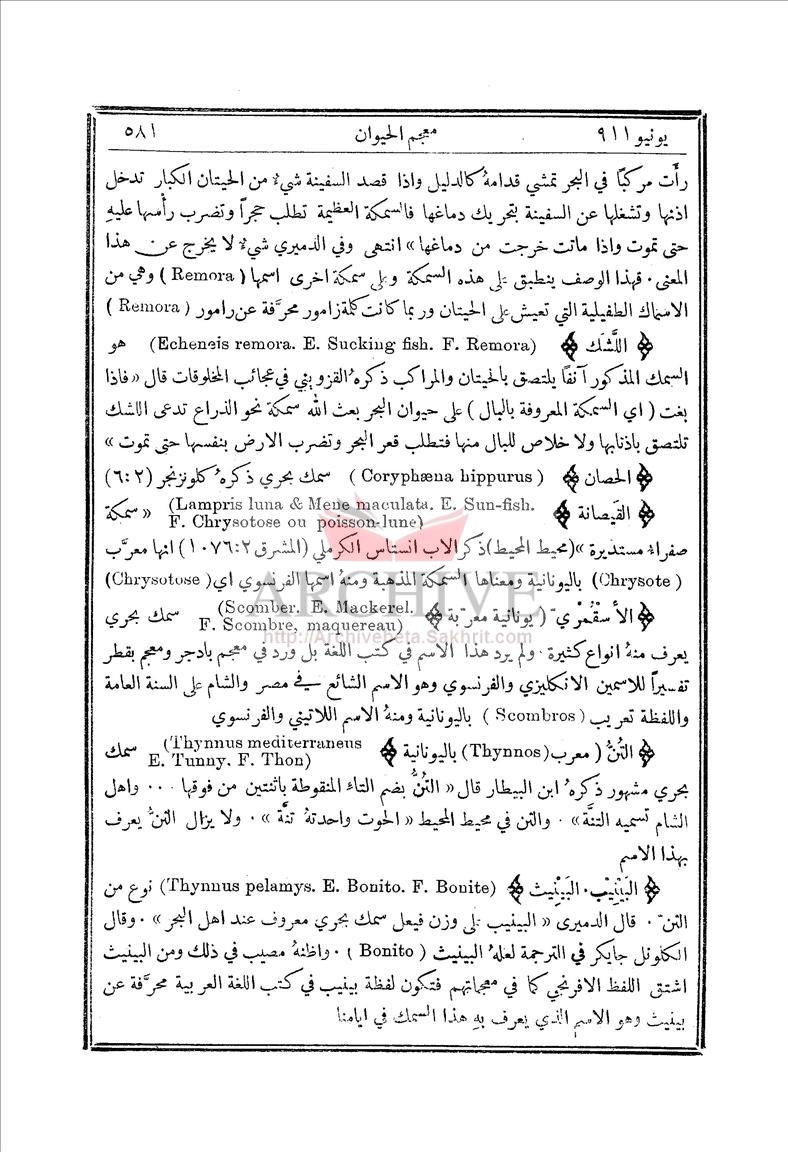 يونيو ٩١١ معجم الحيوان ٥٨١
رأت مركبًا في البحر تمشي قدامهُ كالدليل واذا قصد السفينة شيءٌ من الحيتان الكبار تدخل
اذنها وتشغلها عن السفينة بتحريك دماغها فالسمكة العظيمة تطلب حجراً وتضرب رأسها عليهِ
حتى تموت واذا ماتت خرجت من دماغها» انتهى وفي الدميري شيءٌ لا يخرج عن هذا
المعنى. فهذا الوصف ينطبق على هذه السمكة وعلى سمكة اخرى اسمها (Remora) وهي من
الاسماك الطفيلية التي تعيش على الحيتان وربما كانت كلمة زامور محرَّفة عن رامور (Remora)
﴿اللَّشَك﴾ (Echeneis remora. E. Sucking fish. F. Remora) هو
السمك المذكور آنفًا يلتصق بالحيتان والمراكب ذكرهُ القزويني في عجائب المخلوقات قال «فاذا
بغت (اي السمكة المعروفة بالبال) على حيوان البحر بعث الله سمكة نحو الذراع تدعى اللشك
تلتصق باذنابها ولا خلاص للبال منها فتطلب قعر البحر وتضرب الارض بنفسها حتى تموت»
﴿الحصان﴾ (Coryphæna hippurus) سمك بحري ذكرهُ كلونزنجر (٦:٢)
﴿القيصانة﴾ (Lampris luna & Mene maculata. E. Sun-fish.
F. Chrysotose ou poisson-lune) «سمكة
صفراءُ مستديرة» (محيط المحيط) ذكر الاب انستاس الكرملي (المشرق ١٠٧٦:٢) انها معرَّب
(Chrysote) باليونانية ومعناها السمكة المذهبة ومنهُ اسمها الفرنسوي اي (Chrysotose)
﴿الأسقُمْريّ (يونانية معرّبة﴾ (Scomber. E. Mackerel.
F. Scombre, maquereau) سمك بحري
يعرف منهُ انواع كثيرة. ولم يرد هذا الاسم في كتب اللغة بل ورد في معجم بادجر ومعجم بقطر
تفسيراً للاسمين الانكليزي والفرنسوي وهو الاسم الشائع في مصر والشام على السنة العامة
واللفظة تعريب (Scombros) باليونانية ومنهُ الاسم اللاتيني والفرنسوي
﴿التُنُّ (معرب (Thynnos) باليونانية﴾ (Thynnus mediterraneus
E. Tunny. F. Thon) سمك
بحري مشهور ذكرهُ ابن البيطار قال «التُنُّ بضم التاء المنقوطة باثنتين من فوقها ... واهل
الشام تسميه التنَّة». والتن في محيط المحيط «الحوت واحدتهُ تنَّة». ولا يزال التنُّ يعرف
بهذا الاسم
﴿البَيْنِيْب. البَيْنِيث﴾ (Thynnus pelamys. E. Bonito. F. Bonite) نوع من
التنّ. قال الدميرى «البينيب على وزن فيعل سمك بحري معروف عند اهل البحر». وقال
الكلونل جايكر في الترجمة لعلهُ البينيث (Bonito). واظنهُ مصيب في ذلك ومن البينيث
اشتق اللفظ الافرنجي كما في معجماتهم فتكون لفظة بينيب في كتب اللغة العربية محرَّفة عن
بينيث وهو الاسم الذي يعرف بهِ هذا السمك في ايامنا
ARCHIVE
http://Archivebeta.Sakhrit.com